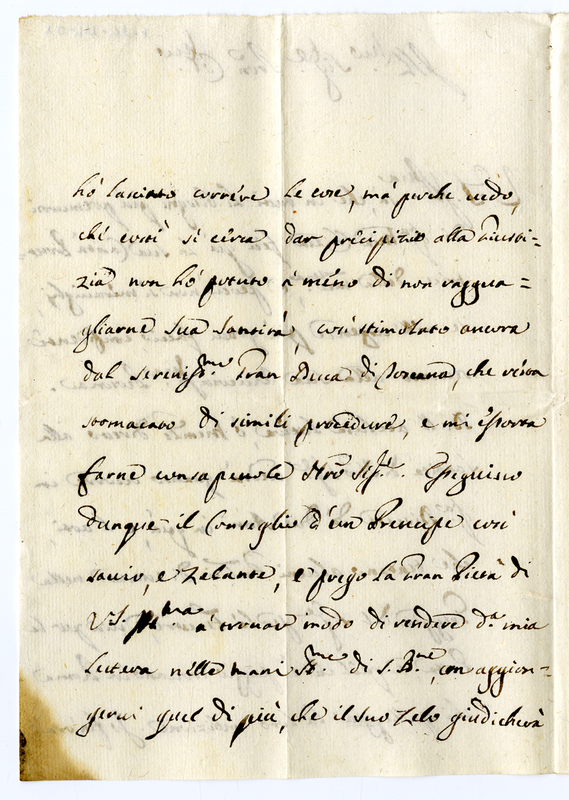 hó lasciato correre le cose, má perche vedo,
che costì si cerca dar precipizio alla Giusti=
zia, non hó potuto á meno di non raggua=
gliarne Sua Santità così stimolato ancora
dal Sereniss.mo Gran Duca di Toscana, che resta
stomacato di simili procedure, e mi esorta
farne consapevole Nro Sig.re. Eseguisco
dunque il Conseglio d'un Principe così
savio, e zelante, e prego la Gran Pietà di
V.S. Ill.ma á trovar modo di rendere d.a mia
lettera nelle mani SS.me di S. B.ne, con aggion=
gervi quel di più, che il suo zelo giudicherà